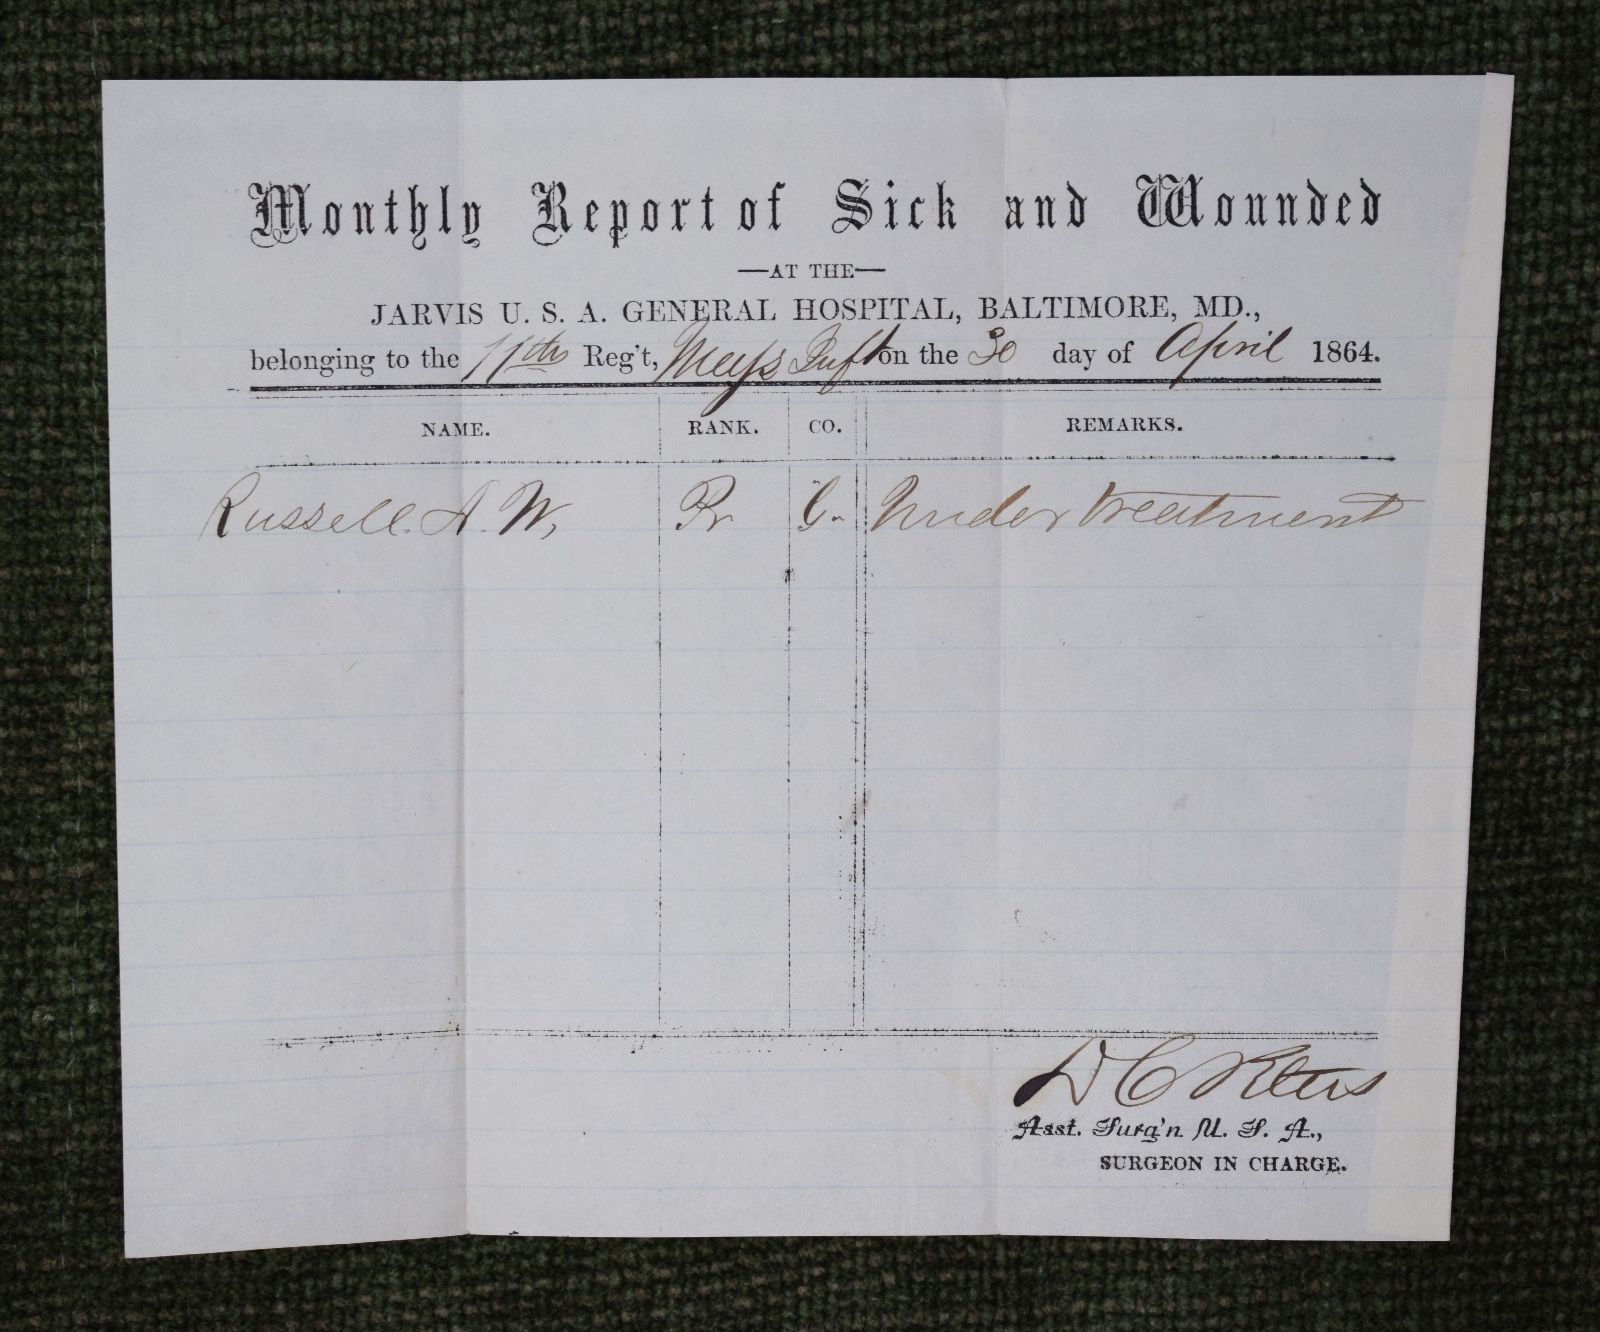 Monthly Report of Sick and Wounded
—AT THE—
JARVIS U. S. A. GENERAL HOSPITAL, BALTIMORE, MD.,
belonging to the 11th Reg't, on the 30 day of April 1864.
NAME. RANK. CO. REMARKS.
Russell. A. W, Pr G. Under treatment
D C Peters
Asst. Surg'n U. S. A.,
SURGEON IN CHARGE.